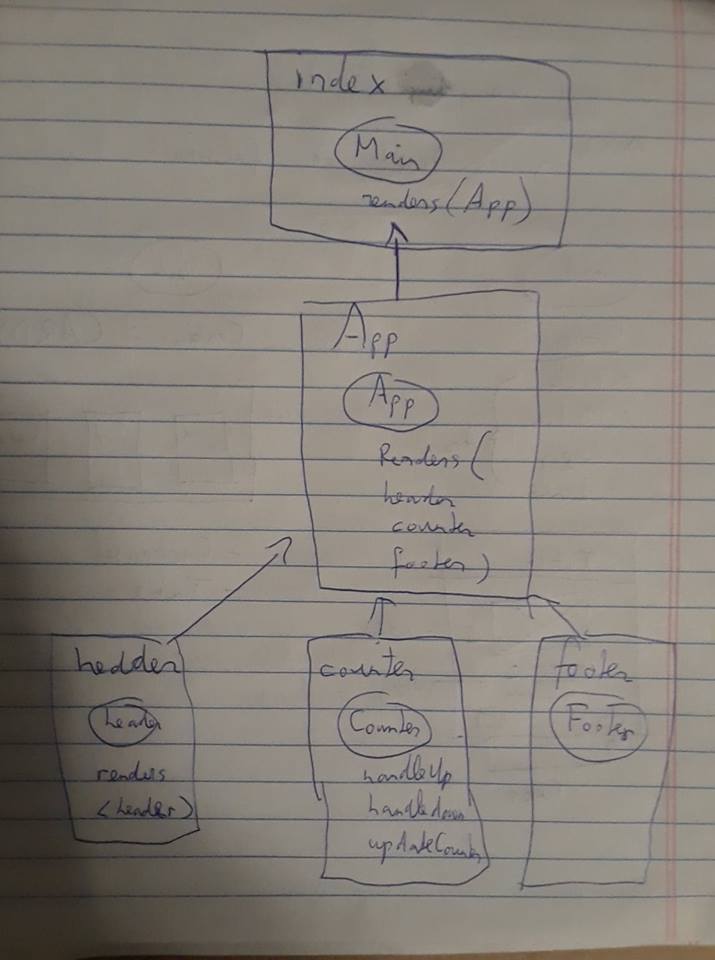 index
Main
renders(App)
App
App
Renders(
header
counter
footer)
hedder
header
renders
<header>
counter
Counter
handleUp
handledown
updateCounter
footer
Footer